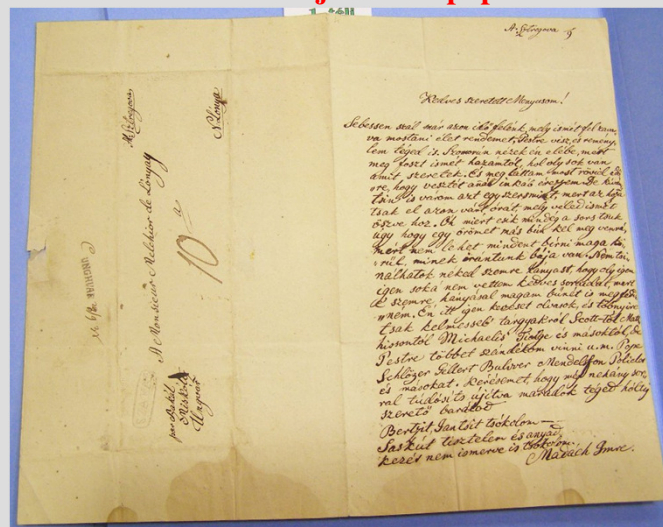 A. Sztregova
Kedves szeretett Menyusom!
Sebessen száll már azon idő felénk, mely ismét felzavar
va mostani élet rendemet, Pestre visz, és remény
lem téged is. Szomorún nézek én elébe, mert
meg foszt ismét hazámtól, hol oly sok van
amit szeretek. És meg láttam most rövid idő
re, hogy vesztét annál inkább érezzem. De
is várom azt egyszersmint, mert az hoz
tsak el azon várt órát, mely veled ismét
öszve hoz. Oh miért esik mindég a sors tsak
úgy hogy egy örömet más búk kel meg venni,
mert nem lehet mindent bírni maga kö
rül, minek irántunk bája van. Nem tsi
nálhatok neked szemre hányást, hogy oly igen
igen soká nem vettem kedves soraidat, mert
a szemre hányásal magam bűnét is meg
nem. Én itt igen keveset olvasok, és többnyire
tsak kelmesebb tárgyakról Scott-tól
Michaelis Tiedge és másoktól, de
Pestre többet szándékom vinni u.m. Pope
Schlözer Gellert Bulwer Mendelsson
és másokat. Kérésemet, hogy még nehány sor
ral tudósíts újítva maradok téged holtig
szerető barátod
Bertzit, Jantsit tsókolom—
Saskút tisztelem és anyád
kezét nem ismerve is tsókolom.
Madách Imre.
M. Sztregova
N. Lónya
A Monsieur Melchior de Lónyay
10
par
Miskólcz
Ungvár
UNGHVAR